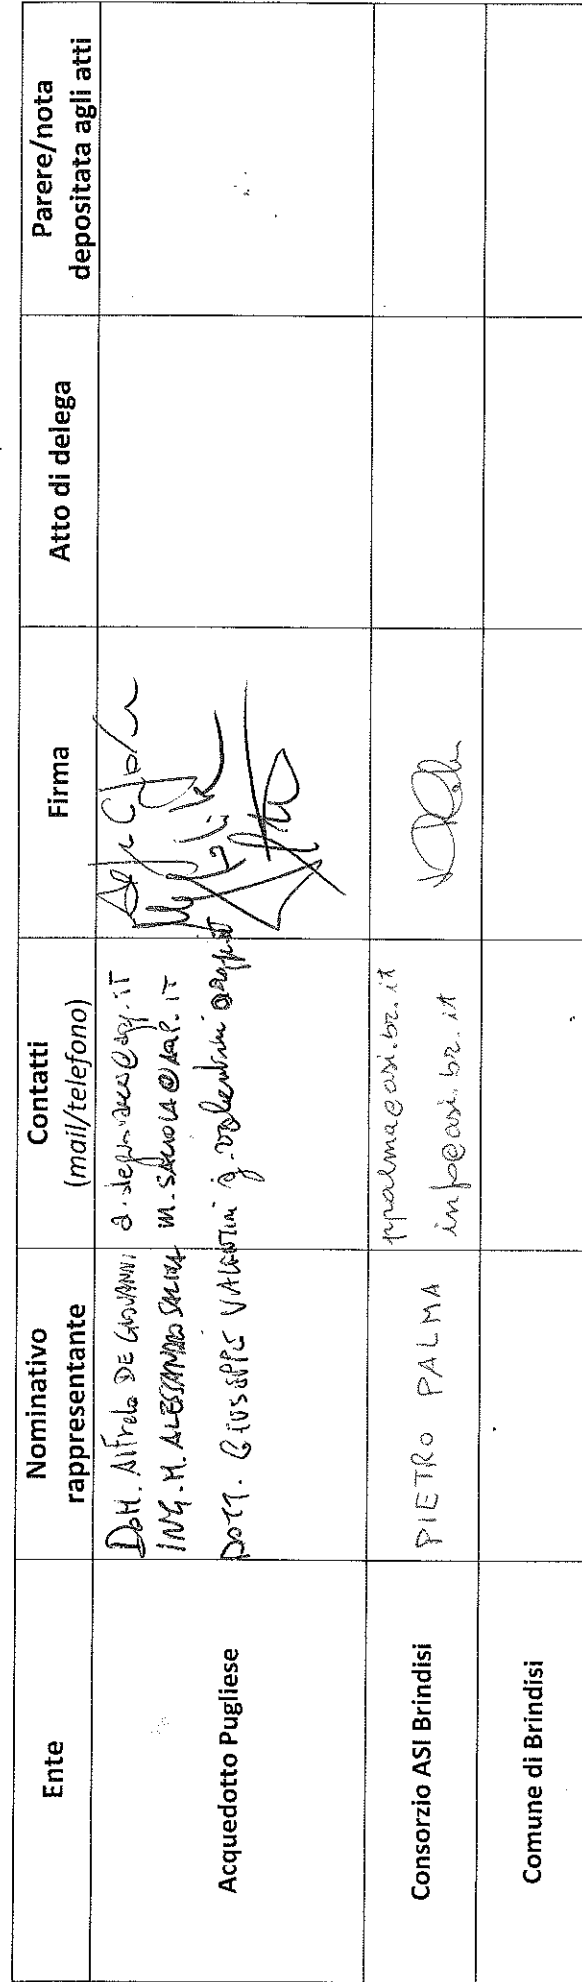 Ente
Nominativo
rappresentante
Contatti
(mail/telefono)
Firma
Atto di delega
Parere/nota
depositata agli atti
Acquedotto Pugliese
Dott. Alfredo DE GIOVANNI
ING. M. ALESSANDRO
DOTT. GIUSEPPE VALENTINI
Consorzio ASI Brindisi
PIETRO PALMA
ppalma@asi.br.it
info@asi.br.it
Comune di Brindisi